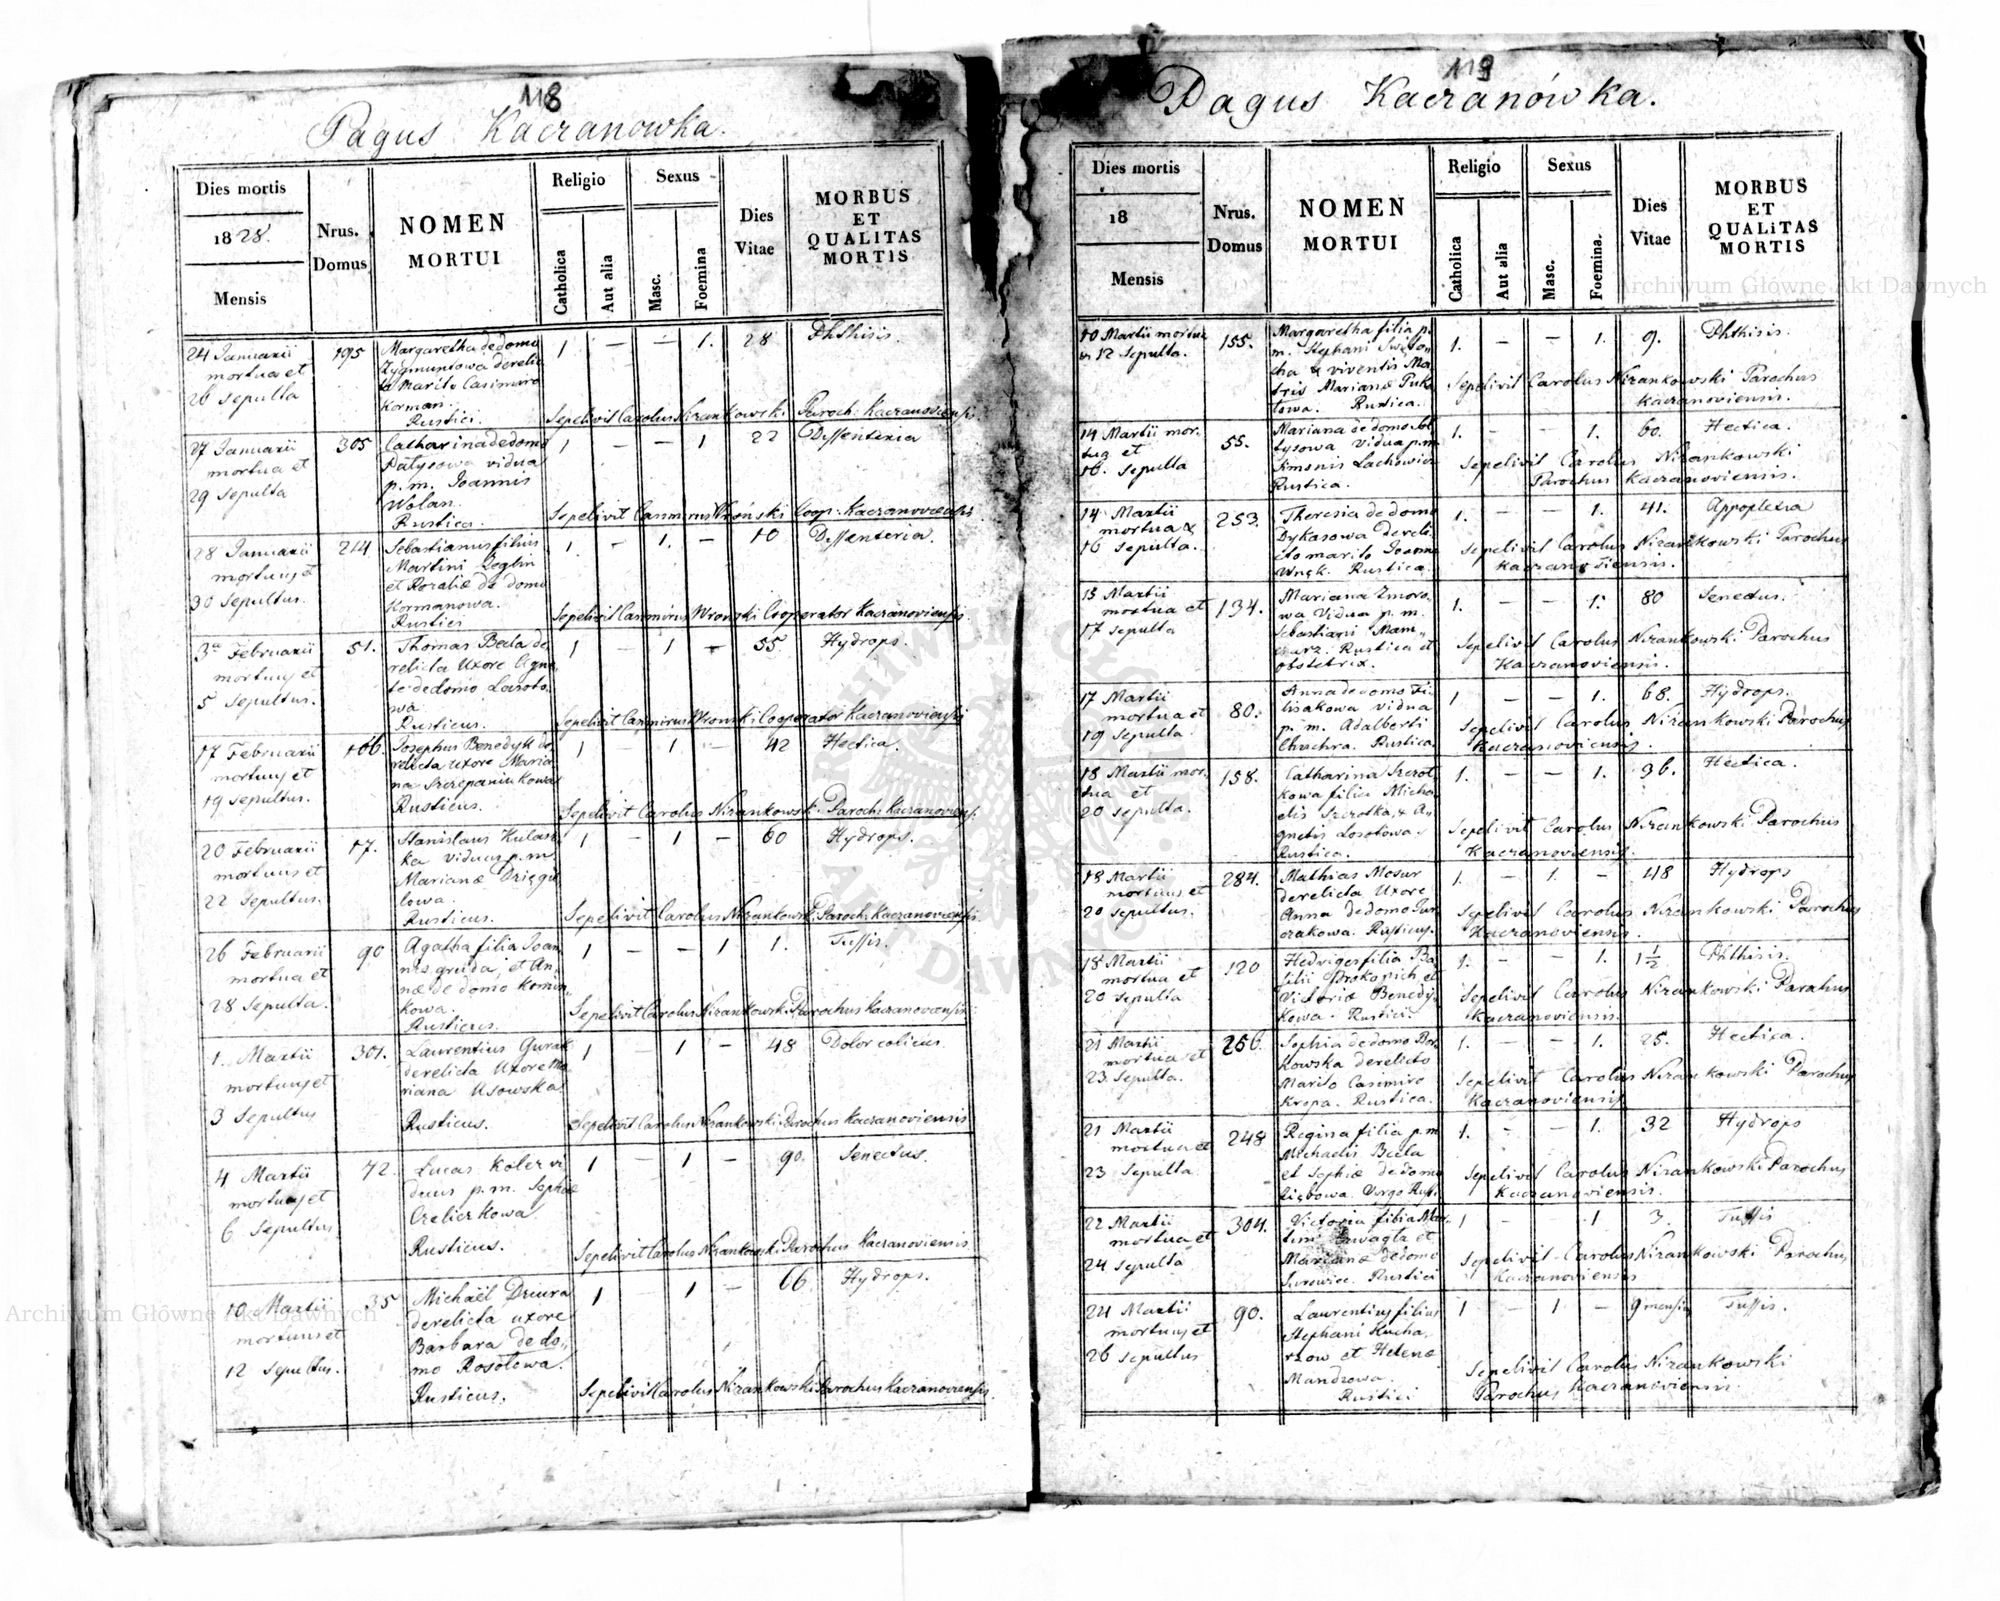 118
Pagus Kaczanowka.
Dies mortis
1828.
Mensis
Nrus.
Domus
NOMEN
MORTUI
Religio
Catholica
Aut alia
Sexus
Masc.
Foemina
Dies
Vitae
MORBUS
ET
QUALITAS
MORTIS
24 Januarii
mortua et
26 Sepulta
195
Margaretha de domo
Zygmuntowa dereli
Marito Casimiro
Korman.
Rustici.
1 — — 1. 28 Phthisis.
Sepelivit Carolus Nizankowski Paroch. Kaczanoviensis
27 Januarii
mortua et
29 Sepulta
305
Catharina de domo
vidua
p. m. Joannis
Wolan.
Rustica.
1 — — 1 22 Dissenteria
Sepelivit Casimirus Wroński Coop. Kaczanoviensis
28 Januarii
mortuus et
30 Sepultus.
214
Sebastianus filius
Martini Zeglin
et Rozaliæ de domo
Kormanowa.
Rustici
1. — 1. — 10 Dissenteria.
Sepelivit Casimirus Wronski Cooperator Kaczanoviensis
3a Februarii
mortuus et
5 Sepultus.
51.
Thomas Beda de
relicta Uxore Agne
te de domo Lasoto
wa
Rusticus.
1 — 1 — 55 Hydrops.
Sepelivit Casimirus Wronski Cooperator Kaczanoviensis
17 Februarii
mortuus et
19 Sepultus.
166.
Josephus Benedyk de
relicta Uxore Maria
na Szczepaniukowa
Rusticus.
1 — 1 — 42 Hectica.
Sepelivit Carolus Nizankowski Paroch. Kaczanoviensis
20 Februarii
mortuus et
22 Sepultus.
17.
Stanislaus Kulasz
ka viduus p. m.
Marianæ
lowa.
Rusticus.
1 — 1 — 60 Hydrops.
Sepelivit Carolus Nizankowski Paroch. Kaczanoviensis
26 Februarii
mortua et
28 Sepulta.
90
Agatha filia Joan
nis gruda, et An
næ de domo Komin
kowa.
Rusticus.
1 — — 1 1. Tussis.
Sepelivit Carolus Nizankowski Parochus Kaczanoviensis
1. Martii
mortuus et
3 Sepultus
301.
Laurentius Gurak
derelicta Uxore Ma
riana Usowska
Rusticus.
1 — 1 — 48 Dolor colicus.
Sepelivit Carolus Nizankowski Parochus Kaczanoviensis
4 Martii
mortuus et
6 Sepultus
72.
Lucas Koler vi
duus p. m. Sophiæ
Rusticus.
1 — 1 — 90. Senectus.
Sepelivit Carolus Nizankowski Parochus Kaczanoviensis
10 Martii
mortuus et
12 Sepultus.
35
Michaël Dziura
derelicta uxore
Barbara de do,,
mo Rosołowa.
Rusticus.
1 — 1 — 66 Hydrops.
Sepelivit Carolus Nizankowski Parochus Kaczanoviensis.
119
Pagus Kaczanówka.
Dies mortis
18
Mensis
Nrus.
Domus
NOMEN
MORTUI
Religio
Catholica
Aut alia
Sexus
Masc.
Foemina.
Dies
Vitae
MORBUS
ET
QUALITAS
MORTIS
10 Martii mortua
12 Sepulta.
155.
Margaretha filia p.
m. Stephani
cha & viventis Ma
tris Marianæ Puka
towa. Rustica.
1. — — 1. 9. Phthisis.
Sepelivit Carolus Nizankowski Parochus
Kaczanoviensis.
14 Martii mor,
tua et
16. Sepulta
55.
Mariana de domo Sol
tysowa vidua p. m.
Simonis Lachowicz
Rustica.
1. — — 1. 60. Hectica.
Sepelivit Carolus Nizankowski
Parochus Kaczanoviensis.
14 Martii
mortua &
16 Sepulta.
253.
Theresia de domo
Dykasowa dereli
cto marito Joanne
Wnęk. Rustica.
1. — — 1. 41. Appoplexia
Sepelivit Carolus Nizankowski Parochus
Kaczanoviensis.
15 Martii
mortua et
17 Sepulta
134.
Mariana Zmoro
wa Vidua p. m.
Sebastiani Mam,,
Rustica et
obstetrix.
1. — — 1. 80 Senectus.
Sepelivit Carolus Nizankowski Parochus
Kaczanoviensis.
17 Martii
mortua et
19 Sepulta.
80.
Anna de domo Fi
lisakowa vidua
p. m. Adalberti
Chuchra. Rustica.
1 — — 1. 68. Hydrops.
Sepelivit Carolus Nizankowski Parochus
Kaczanoviensis.
18 Martii mor,
tua et
20 Sepulta.
158.
Catharina Szerot
kowa filia Micha
elis Szerotka, & A,
gnetis Losotowa,
Rustica.
1. — — 1. 36. Hectica.
Sepelivit Carolus Nizankowski Parochus
Kaczanoviensis.
18 Martii
mortuus et
20 Sepultus.
284.
Mathias Mosur
derelicta Uxore
Anna de domo Jur
czakowa. Rusticus.
1. — 1. — 48 Hydrops
Sepelivit Carolus Nizankowski Parochus
Kaczanoviensis.
18 Martii
mortua et
20 Sepulta
120
Hedviges filia Ba
silii Prokopich et
Victoriæ Benedy
kowa. Rustici.
1. — — 1. 1½ Phthisis.
Sepelivit Carolus Nizankowski Parochus
Kaczanoviensis.
21 Martii
mortua et
23. Sepulta.
256.
Sophia de domo Bor
kowska derelicto
Marito Casimiro
Kropa. Rustica.
1. — — 1. 25. Hectica.
Sepelivit Carolus Nizankowski Parochus
Kaczanoviensis
21 Martii
mortua et
23 Sepulta
248
Regina filia p. m
Michaelis Beda
et Sophiæ de domo
Ziębowa. Virgo Rusti
1. — — 1. 32 Hydrops
Sepelivit Carolus Nizankowski Parochus
Kaczanoviensis.
22 Martii
mortua et
24 Sepulta
304.
Victoria filia Mar
tini et
Marianæ de domo
Surowiec. Rustici
1 — — 1 3. Tussis
Sepelivit Carolus Nizankowski Parochus
Kaczanoviensis
24 Martii
mortuus et
26 Sepultus
90.
Laurentius filius
Stephani Kucha,
rzow et Helenæ
Mandzowa.
Rustici
1 — 1 — 9 mensium Tussis.
Sepelivit Carolus Nizankowski
Parochus Kaczanoviensis.
Archiwum Główne Akt Dawnych
Archiwum Główne Akt Dawnych
ARCHIWUM GŁÓWNE AKT DAWNYCH